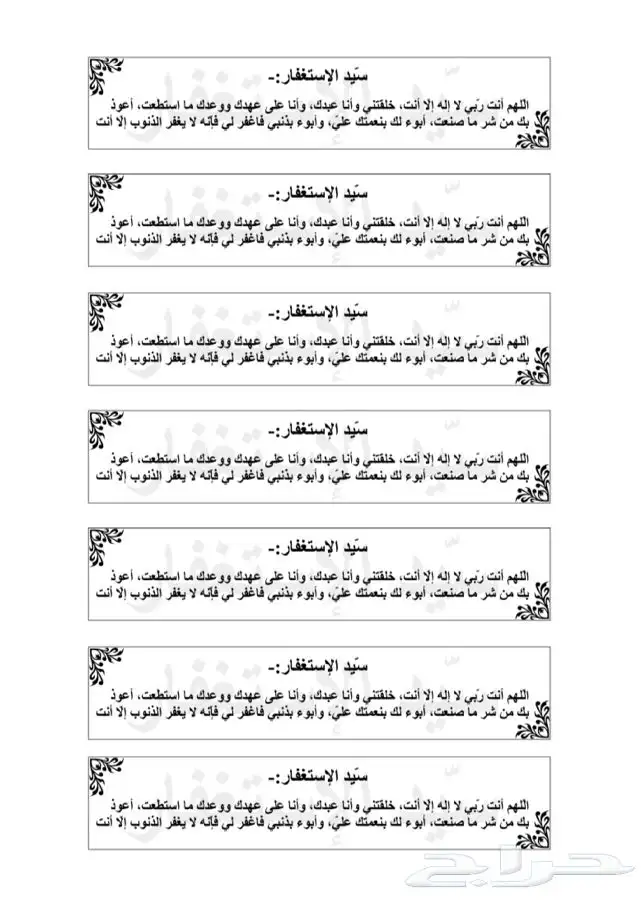 سيّد الإستغفار:-
اللهم أنت ربّي لا إله إلا أنت، خلقتني وأنا عبدك، وأنا على عهدك ووعدك ما استطعت، أعوذ
بك من شر ما صنعت، أبوء لك بنعمتك عليّ، وأبوء بذنبي فاغفر لي فإنه لا يغفر الذنوب إلا أنت
سيّد الإستغفار:-
اللهم أنت ربّي لا إله إلا أنت، خلقتني وأنا عبدك، وأنا على عهدك ووعدك ما استطعت، أعوذ
بك من شر ما صنعت، أبوء لك بنعمتك عليّ، وأبوء بذنبي فاغفر لي فإنه لا يغفر الذنوب إلا أنت
سيّد الإستغفار:-
اللهم أنت ربّي لا إله إلا أنت، خلقتني وأنا عبدك، وأنا على عهدك ووعدك ما استطعت، أعوذ
بك من شر ما صنعت، أبوء لك بنعمتك عليّ، وأبوء بذنبي فاغفر لي فإنه لا يغفر الذنوب إلا أنت
سيّد الإستغفار:-
اللهم أنت ربّي لا إله إلا أنت، خلقتني وأنا عبدك، وأنا على عهدك ووعدك ما استطعت، أعوذ
بك من شر ما صنعت، أبوء لك بنعمتك عليّ، وأبوء بذنبي فاغفر لي فإنه لا يغفر الذنوب إلا أنت
سيّد الإستغفار:-
اللهم أنت ربّي لا إله إلا أنت، خلقتني وأنا عبدك، وأنا على عهدك ووعدك ما استطعت، أعوذ
بك من شر ما صنعت، أبوء لك بنعمتك عليّ، وأبوء بذنبي فاغفر لي فإنه لا يغفر الذنوب إلا أنت
سيّد الإستغفار:-
اللهم أنت ربّي لا إله إلا أنت، خلقتني وأنا عبدك، وأنا على عهدك ووعدك ما استطعت، أعوذ
بك من شر ما صنعت، أبوء لك بنعمتك عليّ، وأبوء بذنبي فاغفر لي فإنه لا يغفر الذنوب إلا أنت
سيّد الإستغفار:-
اللهم أنت ربّي لا إله إلا أنت، خلقتني وأنا عبدك، وأنا على عهدك ووعدك ما استطعت، أعوذ
بك من شر ما صنعت، أبوء لك بنعمتك عليّ، وأبوء بذنبي فاغفر لي فإنه لا يغفر الذنوب إلا أنت
حراج